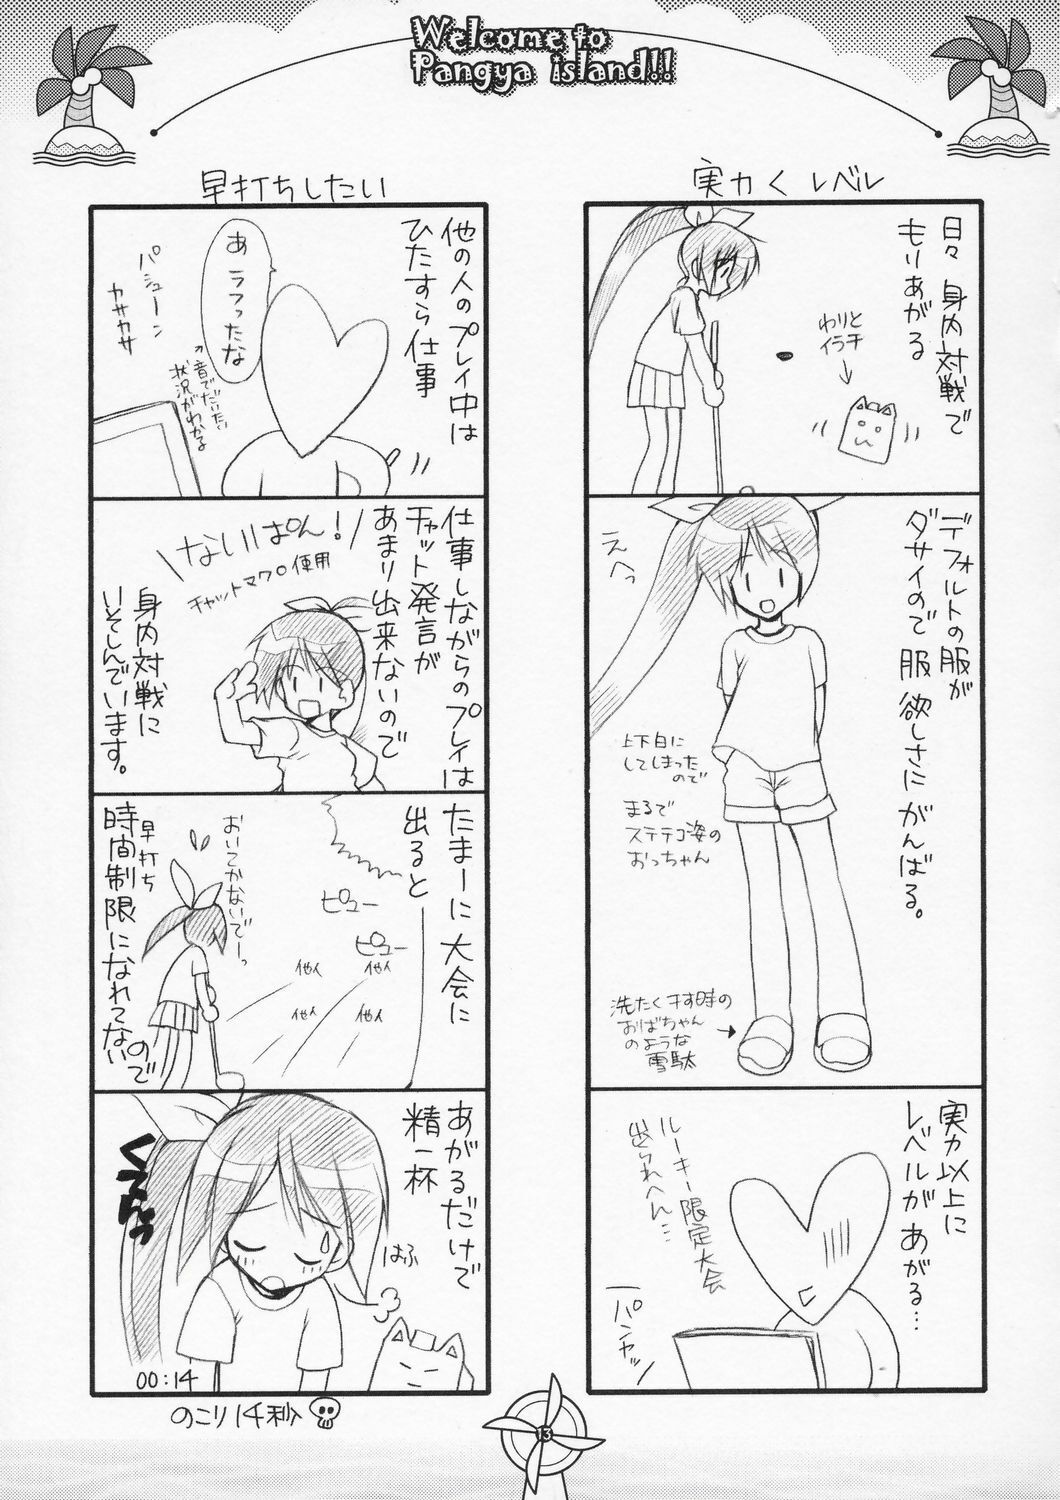 Welcome to
Pangya island!!
実力くレベル
日々身内対戦で
もりあがる
わりと
イラチ
デフォルトの服が
ダサイので服欲しさにがんばる。
えへっ
上下白に
してしまった
ので
まるで
ステテコ姿の
おっちゃん
洗たく干す時の
おばちゃん
のような
雪駄
実力以上に
レベルがあがる…
ルーキー限定大会
出られへん…
パンヤッ
早打ちしたい
他の人のプレイ中は
ひたすら仕事
あ ラフったな
↑音でだいたい
状況がわかる
パシューン
カサカサ
仕事しながらのプレイは
チャット発言が
あまり出来ないので
ないぱん!
チャットマクロ使用
身内対戦に
いそしんでいます。
たまーに大会に
出ると
ピュー
ピュー
他人
他人
他人
他人
おいてかないでーっ
早打ち
時間制限になれてないので
あがるだけで
精一杯
はふ
くすんっ
00:14
のこり14秒
13